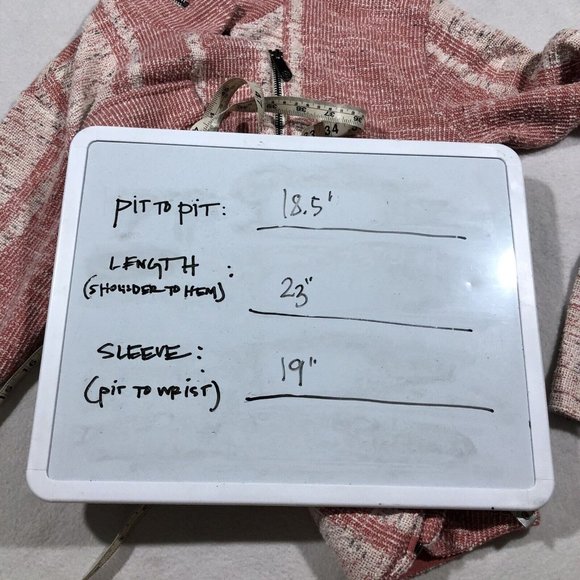 PIT TO PIT: 18.5'
LENGTH :
(SHOULDER TO HEM) 23"
SLEEVE: 19"
(PIT TO WRIST)
34